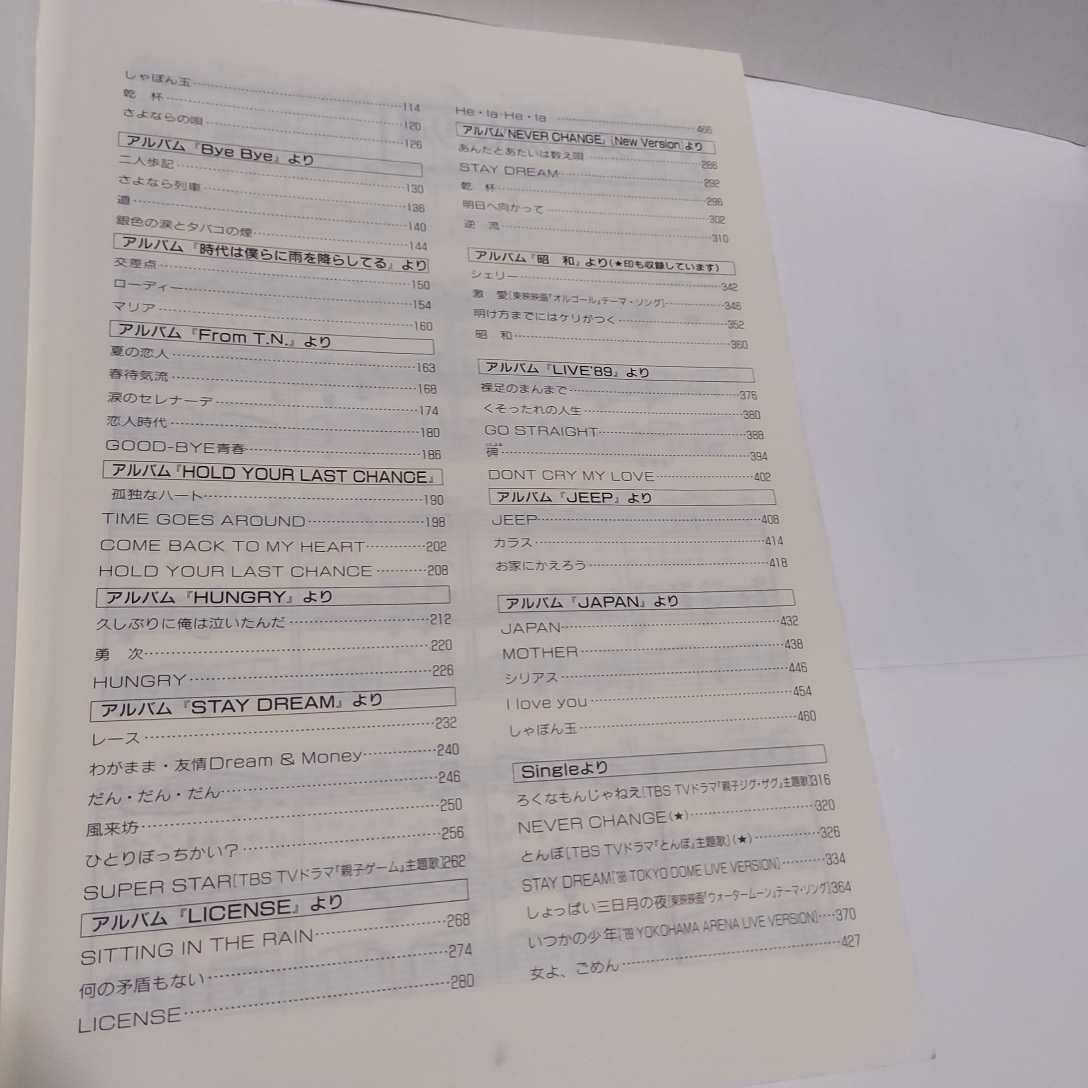 しゃぼん玉……114
乾　杯……120
さよならの唄……126
アルバム『Bye Bye』より
二人歩記……130
さよなら列車……136
道……140
銀色の涙とタバコの煙……144
アルバム『時代は僕らに雨を降らしてる』より
交差点……150
ローディー……154
マリア……160
アルバム『From T.N.』より
夏の恋人……163
春待気流……168
涙のセレナーデ……174
恋人時代……180
GOOD-BYE青春……186
アルバム『HOLD YOUR LAST CHANCE』
孤独なハート……190
TIME GOES AROUND……198
COME BACK TO MY HEART……202
HOLD YOUR LAST CHANCE……208
アルバム『HUNGRY』より
久しぶりに俺は泣いたんだ……212
勇　次……220
HUNGRY……226
アルバム『STAY DREAM』より
レース……232
わがまま・友情Dream & Money……240
だん・だん・だん……246
風来坊……250
ひとりぼっちかい?……256
SUPER STAR[TBS TVドラマ『親子ゲーム』主題歌]262
アルバム『LICENSE』より
SITTING IN THE RAIN……268
何の矛盾もない……274
LICENSE……280
He・la He・la……466
アルバム『NEVER CHANGE』[New Version]より
あんたとあたいは数え唄……286
STAY DREAM……292
乾　杯……296
明日へ向かって……302
逆　流……310
アルバム『昭　和』より(★印も収録しています)
シェリー……342
激　愛[東映映画『オルゴール』テーマ・ソング]……346
明け方までにはケリがつく……352
昭　和……360
アルバム『LIVE'89』より
裸足のまんまで……376
くそったれの人生……380
GO STRAIGHT……388
碑……394
DONT CRY MY LOVE……402
アルバム『JEEP』より
JEEP……408
カラス……414
お家にかえろう……418
アルバム『JAPAN』より
JAPAN……432
MOTHER……438
シリアス……446
I love you……454
しゃぼん玉……460
Singleより
ろくなもんじゃねえ[TBS TVドラマ『親子ジグ・ザグ』主題歌]316
NEVER CHANGE(★)……320
とんぼ[TBS TVドラマ『とんぼ』主題歌](★)……326
STAY DREAM['88 TOKYO DOME LIVE VERSION]……334
しょっぱい三日月の夜[東映映画『ウォータームーン』テーマ・ソング]364
いつかの少年['89 YOKOHAMA ARENA LIVE VERSION]……370
女よ、ごめん……427